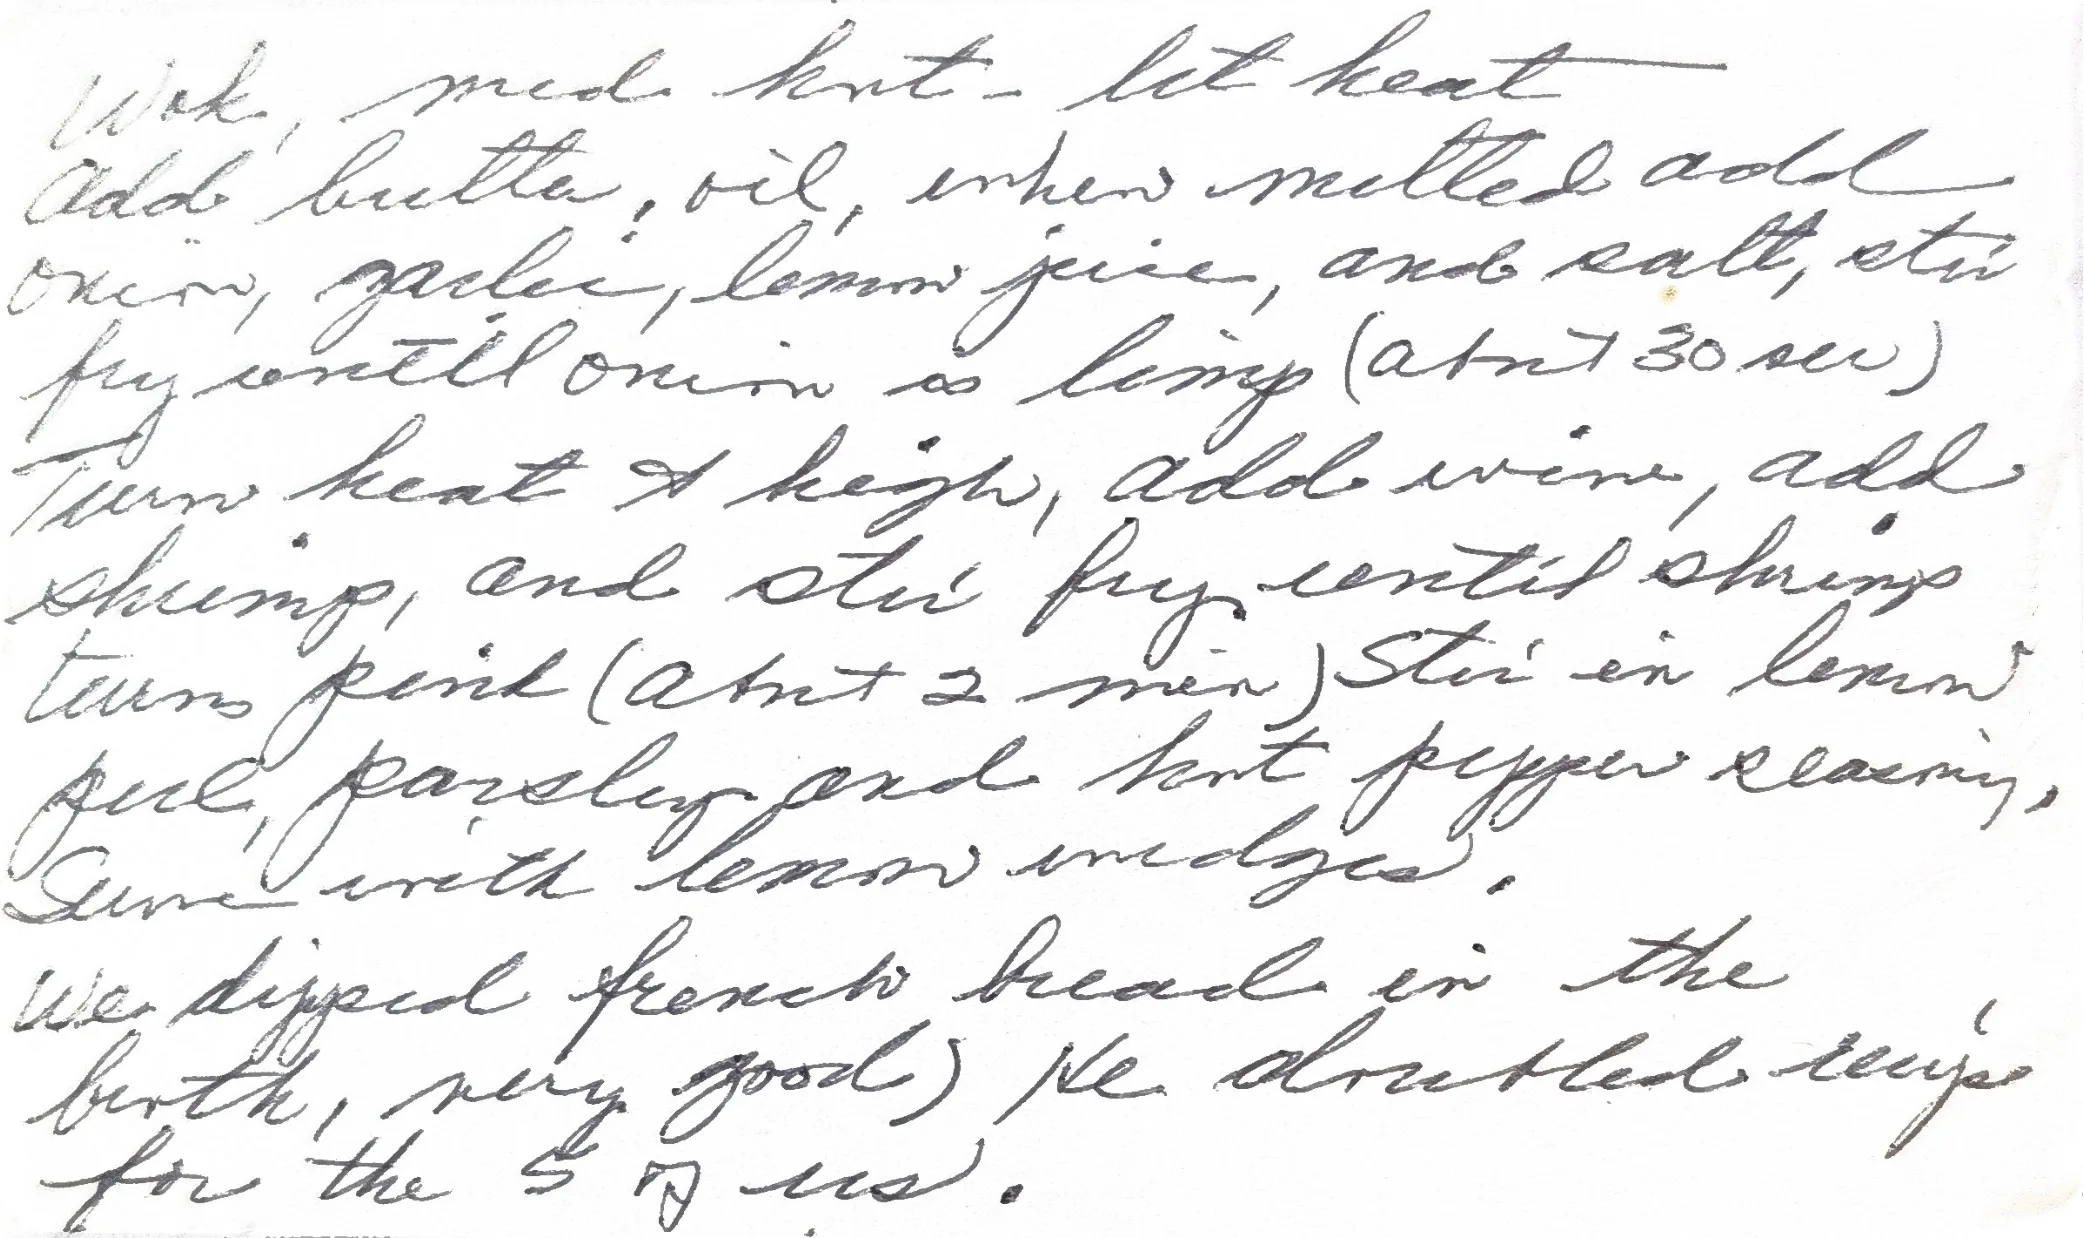 Wok, med hot - let heat
add butter, oil, when melted add
onion, garlic, lemon juice, and salt, stir
fry until onion is limp (about 30 sec)
Turn heat to high, add wine, add
shrimp, and stir fry until shrimp
turns pink (about 2 min) Stir in lemon
peel, parsley and hot pepper seasoning,
Serve with lemon wedges.
We dipped french bread in the
broth, very good) He doubled recipe
for the 5 of us.